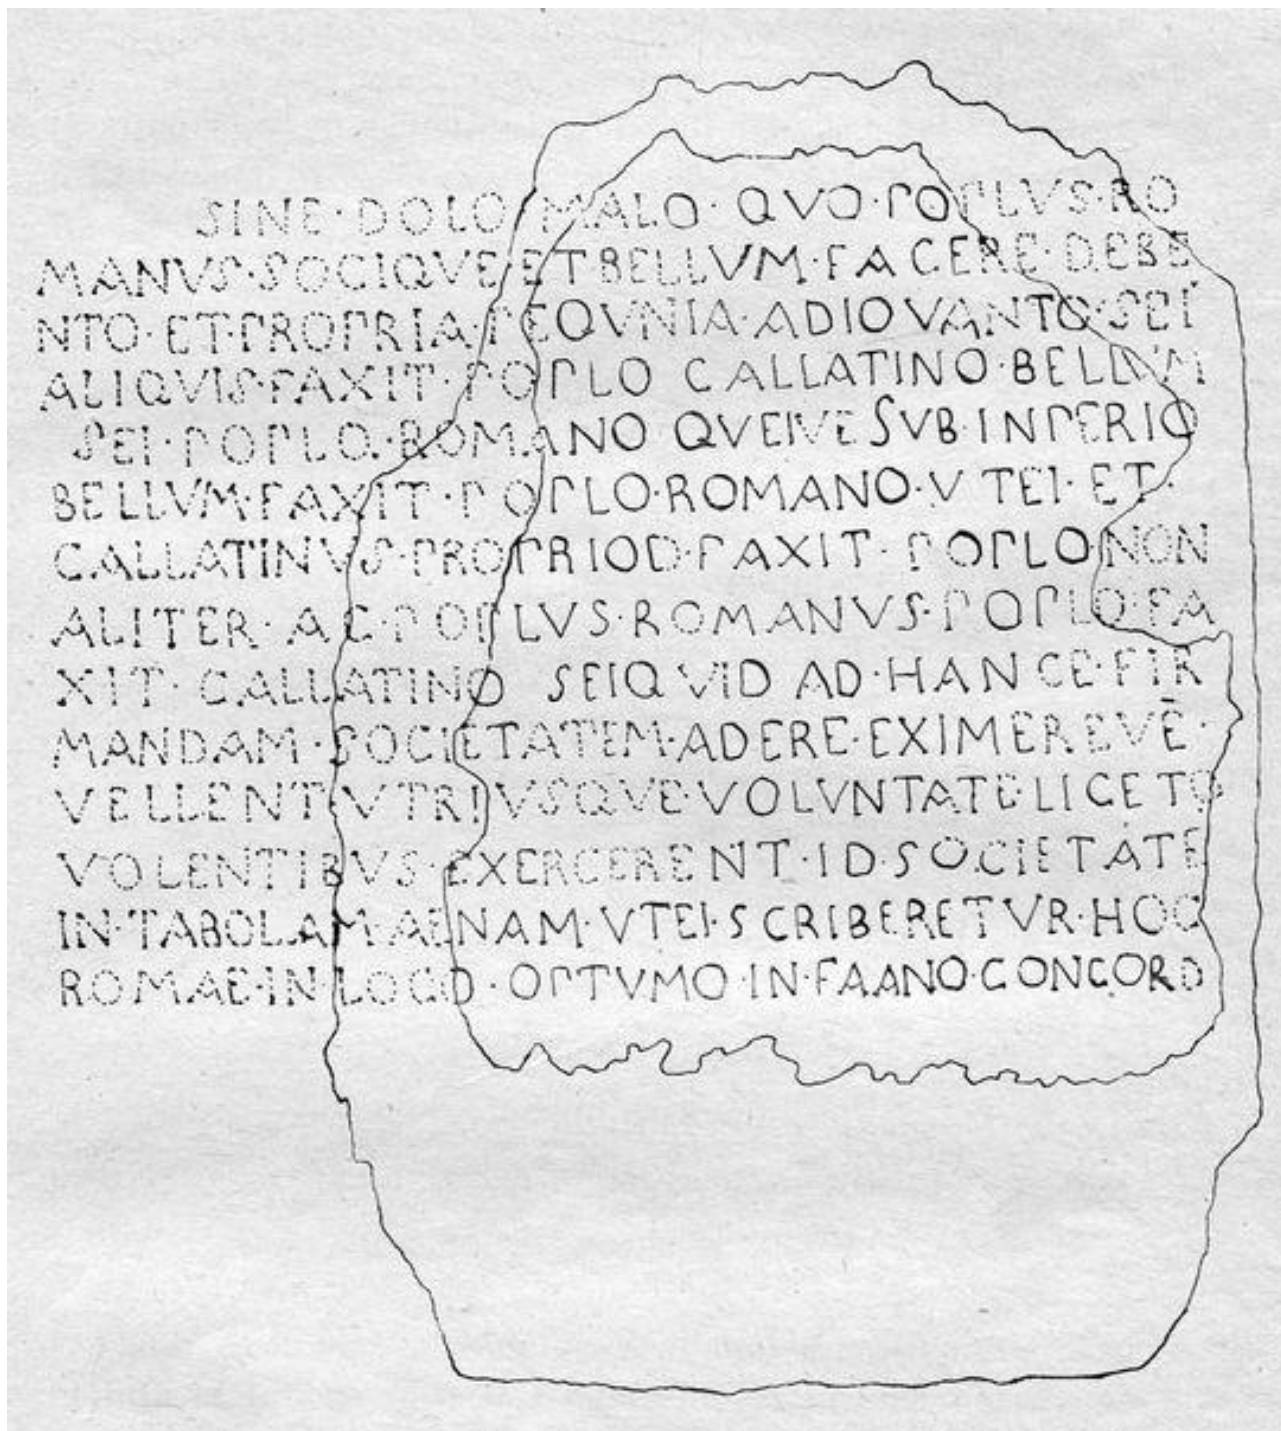 SINE·DOLO MALO·QVO·POPLVS·RO
MANVS·SOCIQVE ET BELLVM·FACERE·DEBE
NTO·ET·PROPRIA·PEQVNIA·ADIOVANTO·SEI
ALIQVIS·FAXIT·POPLO CALLATINO·BELLVM
SEI·POPLO·ROMANO QVEIVE SVB·INPERIO
BELLVM·FAXIT·POPLO·ROMANO·VTEI·ET·
CALLATINVS·PROPRIOD·FAXIT·POPLO·NON
ALITER·AC·POPLVS·ROMANVS·POPLO·FA
XIT·CALLATINO SEIQVID AD·HANCE·FIR
MANDAM·SOCIETATEM·ADERE·EXIMEREVĒ·
VELLENT VTRIVSQVE·VOLVNTATE·LICETO
VOLENTIBVS·EXERCERENT·ID·SOCIETATE
IN·TABOLAM·AENAM·VTEI·SCRIBERETVR·HOC
ROMAE·IN·LOCO·OPTVMO·IN·FAANO·CONCORD